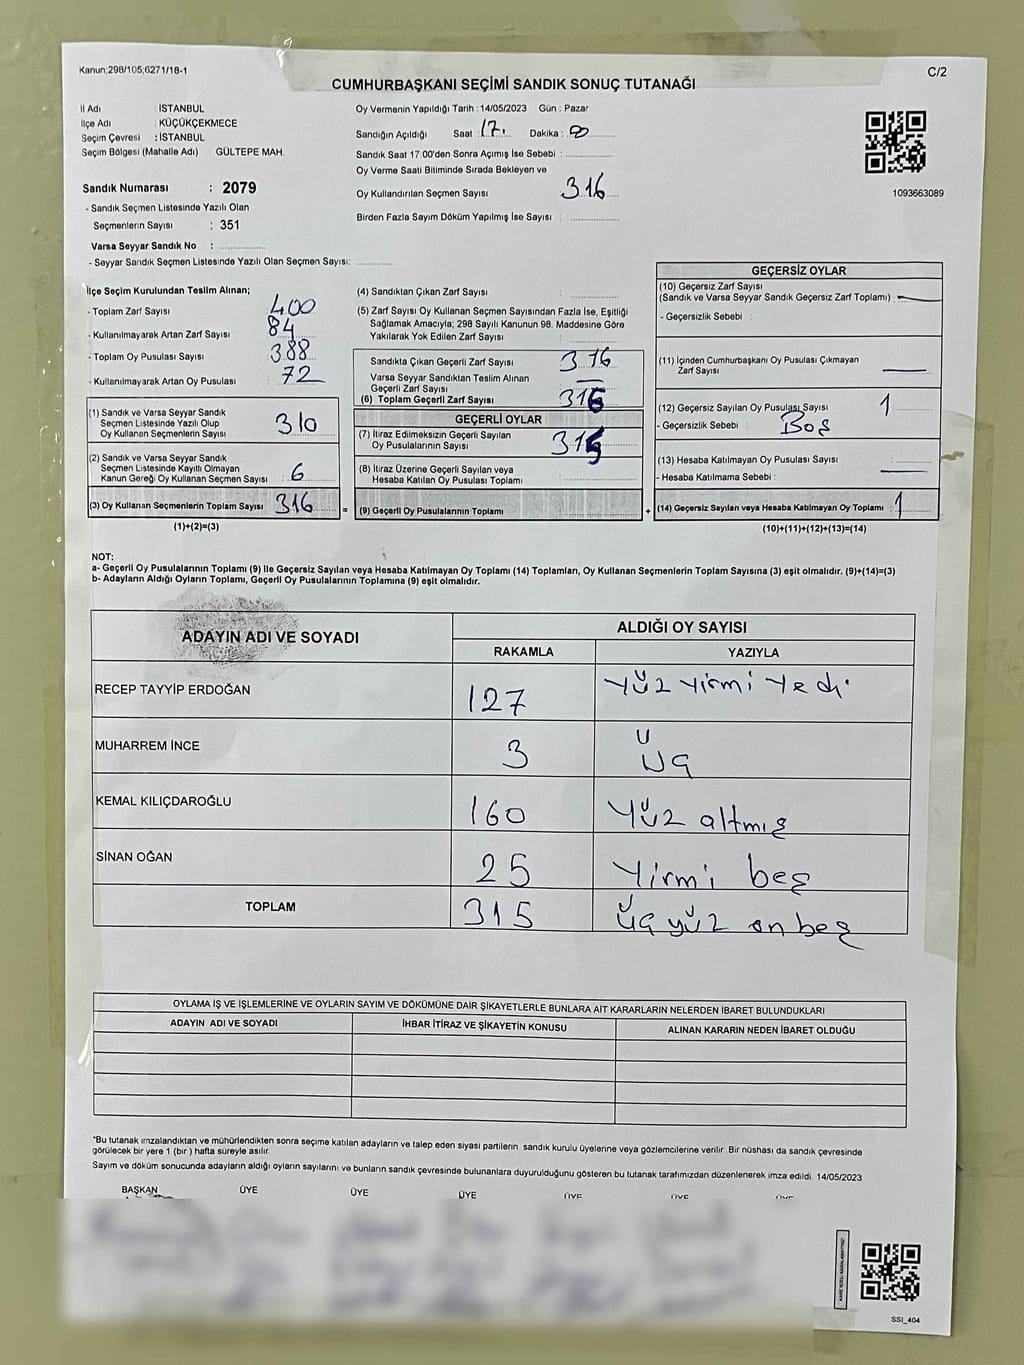 Kanun;298/105;6271/18-1
C/2
CUMHURBAŞKANI SEÇİMİ SANDIK SONUÇ TUTANAĞI
İl Adı : İSTANBUL
İlçe Adı : KÜÇÜKÇEKMECE
Seçim Çevresi : İSTANBUL
Seçim Bölgesi (Mahalle Adı) : GÜLTEPE MAH.
Sandık Numarası : 2079
- Sandık Seçmen Listesinde Yazılı Olan
Seçmenlerin Sayısı : 351
Varsa Seyyar Sandık No :
- Seyyar Sandık Seçmen Listesinde Yazılı Olan Seçmen Sayısı:
Oy Vermenin Yapıldığı Tarih : 14/05/2023 Gün : Pazar
Sandığın Açıldığı Saat : 17. Dakika : 00
Sandık Saat 17.00'den Sonra Açımış İse Sebebi :
Oy Verme Saati Bitiminde Sırada Bekleyen ve
Oy Kullandırılan Seçmen Sayısı 316
Birden Fazla Sayım Döküm Yapılmış İse Sayısı :
1093663089
İlçe Seçim Kurulundan Teslim Alınan;
- Toplam Zarf Sayısı 400
- Kullanılmayarak Artan Zarf Sayısı 84
- Toplam Oy Pusulası Sayısı 388
- Kullanılmayarak Artan Oy Pusulası 72
(1) Sandık ve Varsa Seyyar Sandık
Seçmen Listesinde Yazılı Olup
Oy Kullanan Seçmenlerin Sayısı 310
(2) Sandık ve Varsa Seyyar Sandık
Seçmen Listesinde Kayıtlı Olmayan
Kanun Gereği Oy Kullanan Seçmen Sayısı : 6
(3) Oy Kullanan Seçmenlerin Toplam Sayısı 316
(1)+(2)=(3)
(4) Sandıktan Çıkan Zarf Sayısı :
(5) Zarf Sayısı Oy Kullanan Seçmen Sayısından Fazla İse, Eşitliği
Sağlamak Amacıyla; 298 Sayılı Kanunun 98. Maddesine Göre
Yakılarak Yok Edilen Zarf Sayısı :
Sandıkta Çıkan Geçerli Zarf Sayısı 316
Varsa Seyyar Sandıktan Teslim Alınan
Geçerli Zarf Sayısı —
(6) Toplam Geçerli Zarf Sayısı 316
GEÇERLİ OYLAR
(7) İtiraz Edilmeksizin Geçerli Sayılan
Oy Pusulalarının Sayısı 315
(8) İtiraz Üzerine Geçerli Sayılan veya
Hesaba Katılan Oy Pusulası Toplamı :
= (9) Geçerli Oy Pusulalarının Toplamı : +
GEÇERSİZ OYLAR
(10) Geçersiz Zarf Sayısı
(Sandık ve Varsa Seyyar Sandık Geçersiz Zarf Toplamı) : —
- Geçersizlik Sebebi :
(11) İçinden Cumhurbaşkanı Oy Pusulası Çıkmayan
Zarf Sayısı —
(12) Geçersiz Sayılan Oy Pusulası Sayısı 1
- Geçersizlik Sebebi : Boş
(13) Hesaba Katılmayan Oy Pusulası Sayısı : —
- Hesaba Katılmama Sebebi :
(14) Geçersiz Sayılan veya Hesaba Katılmayan Oy Toplamı : 1
(10)+(11)+(12)+(13)=(14)
NOT:
a- Geçerli Oy Pusulalarının Toplamı (9) İle Geçersiz Sayılan veya Hesaba Katılmayan Oy Toplamı (14) Toplamları, Oy Kullanan Seçmenlerin Toplam Sayısına (3) eşit olmalıdır. (9)+(14)=(3)
b- Adayların Aldığı Oyların Toplamı, Geçerli Oy Pusulalarının Toplamına (9) eşit olmalıdır.
ADAYIN ADI VE SOYADI
ALDIĞI OY SAYISI
RAKAMLA YAZIYLA
RECEP TAYYİP ERDOĞAN 127 Yüz yirmi yedi
MUHARREM İNCE 3 Üç
KEMAL KILIÇDAROĞLU 160 Yüz altmış
SİNAN OĞAN 25 Yirmi beş
TOPLAM 315 Üç yüz on beş
OYLAMA İŞ VE İŞLEMLERİNE VE OYLARIN SAYIM VE DÖKÜMÜNE DAİR ŞİKAYETLERLE BUNLARA AİT KARARLARIN NELERDEN İBARET BULUNDUKLARI
ADAYIN ADI VE SOYADI İHBAR İTİRAZ VE ŞİKAYETİN KONUSU ALINAN KARARIN NEDEN İBARET OLDUĞU
*Bu tutanak imzalandıktan ve mühürlendikten sonra seçime katılan adayların ve talep eden siyasi partilerin sandık kurulu üyelerine veya gözlemcilerine verilir. Bir nüshası da sandık çevresinde
görülecek bir yere 1 (bir ) hafta süreyle asılır.
Sayım ve döküm sonucunda adayların aldığı oyların sayılarını ve bunların sandık çevresinde bulunanlara duyurulduğunu gösteren bu tutanak tarafımızdan düzenlenerek imza edildi. 14/05/2023
BAŞKAN ÜYE ÜYE ÜYE ÜYE ÜYE ÜYE
SSI_404